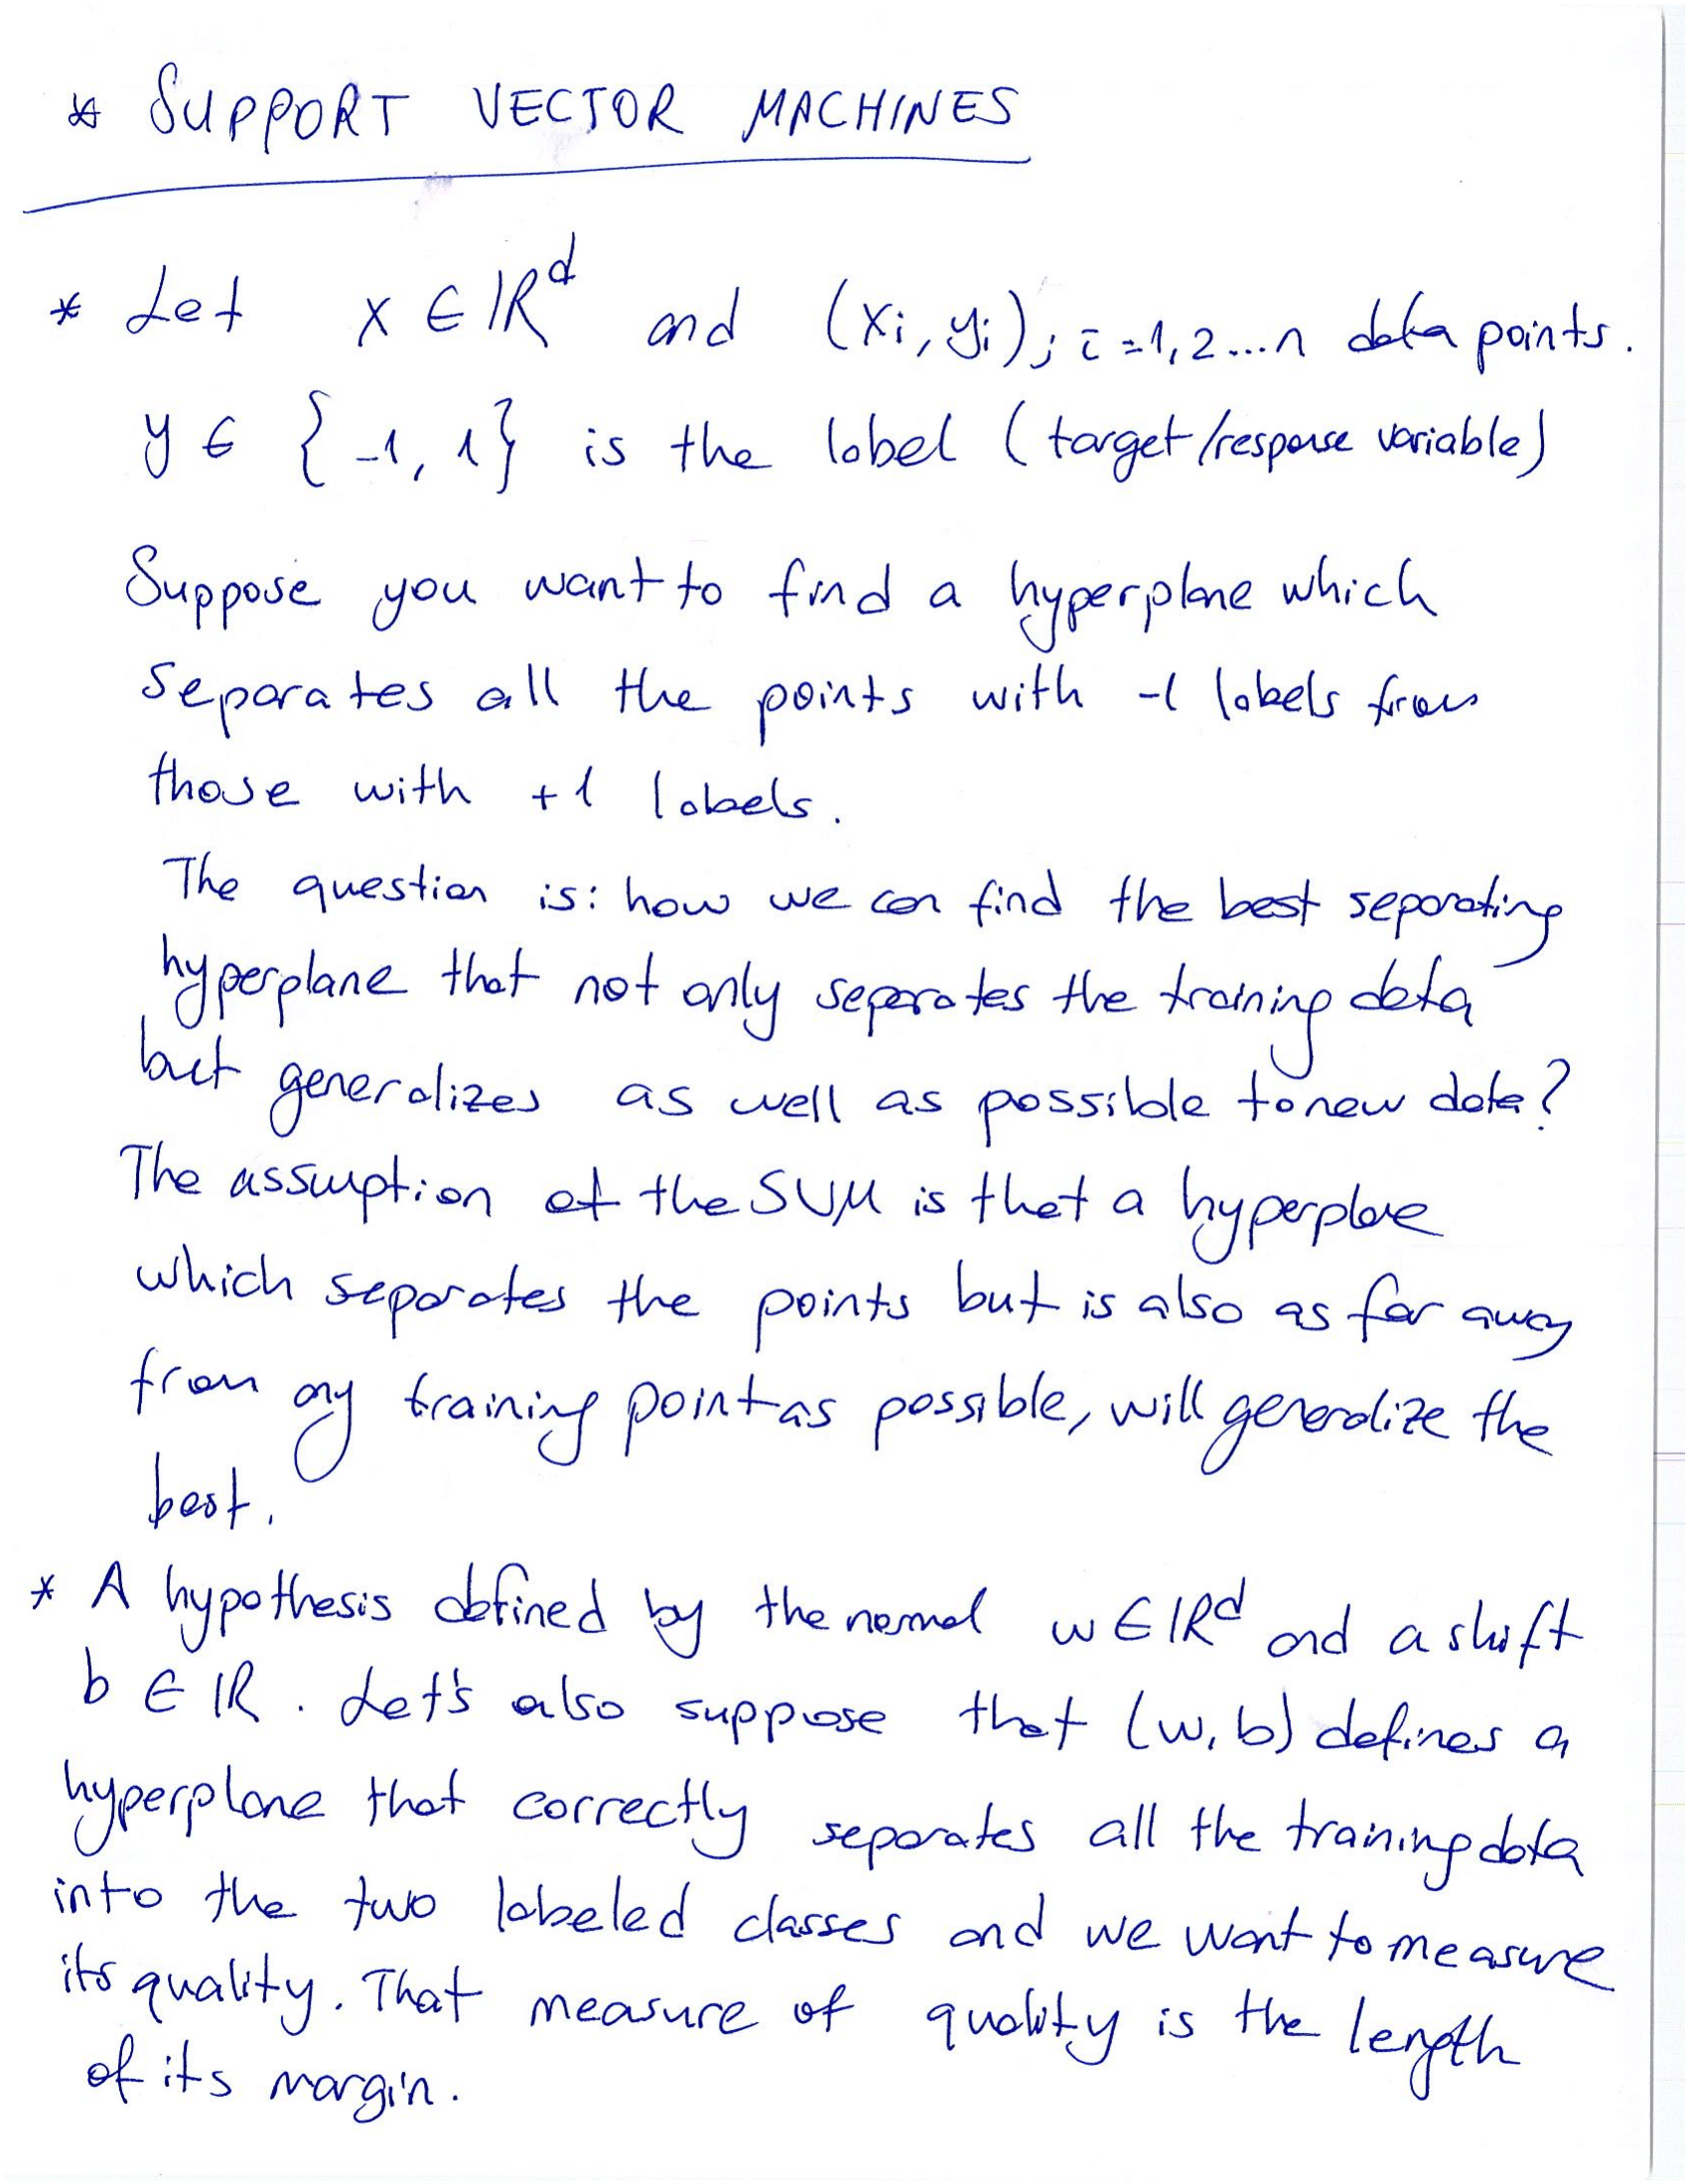 * SUPPORT VECTOR MACHINES
* Let x ∈ ℝᵈ and (xi, yi); i=1,2...n data points.
y ∈ {-1, 1} is the label (target/response variable)
Suppose you want to find a hyperplane which
separates all the points with -1 labels from
those with +1 labels.
The question is: how we can find the best separating
hyperplane that not only separates the training data
but generalizes as well as possible to new data?
The assumption of the SVM is that a hyperplane
which separates the points but is also as far away
from any training point as possible, will generalize the
best.
* A hypothesis defined by the normal w ∈ ℝᵈ and a shift
b ∈ ℝ. Let's also suppose that (w, b) defines a
hyperplane that correctly separates all the training data
into the two labeled classes and we want to measure
its quality. That measure of quality is the length
of its margin.